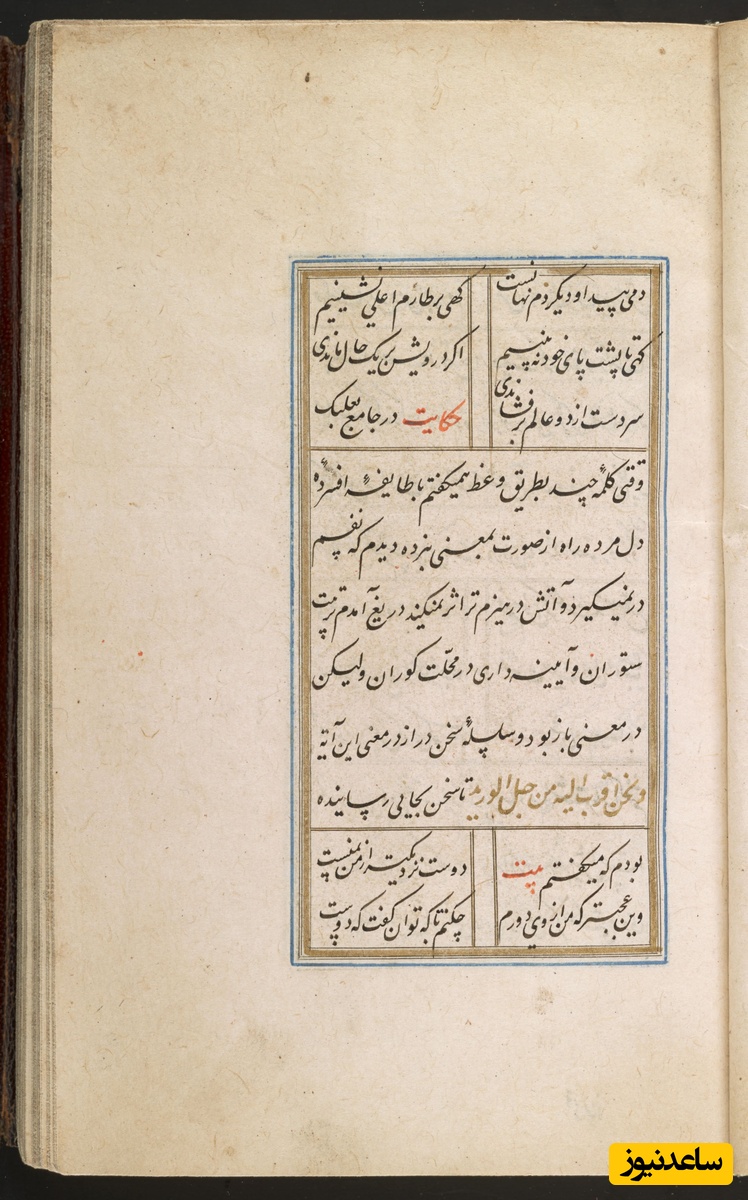 دمی پیدا و دیگر دم نهانست گهی بر طارم اعلی نشینیم
گهی تا پشت پای خود نه بینیم اگر درویش بر یک حال ماندی
سر دست از دو عالم بر فشاندی حکایت در جامع بعلبک
وقتی کلمهٔ چند بطریق وعظ همیگفتم با طایفهٔ افسردهٔ
دل مرده راه از صورت بمعنی نبرده دیدم که نفسم
در نمیگیرد و آتش در هیزم تر اثر نمیکند دریغ آمدم تربیت
ستوران و آیینه داری در محلت کوران ولیکن
در معنی باز بود و سلسلهٔ سخن دراز در معنی این آیه
و نحن اقرب الیه من حبل الورید تا سخن بجایی رسانیده
بودم که میگفتم بیت دوست نزدیکتر از من بمنست
وین عجبتر که من از وی دورم چکنم با که توان گفت که دوست
ساعدنیوز